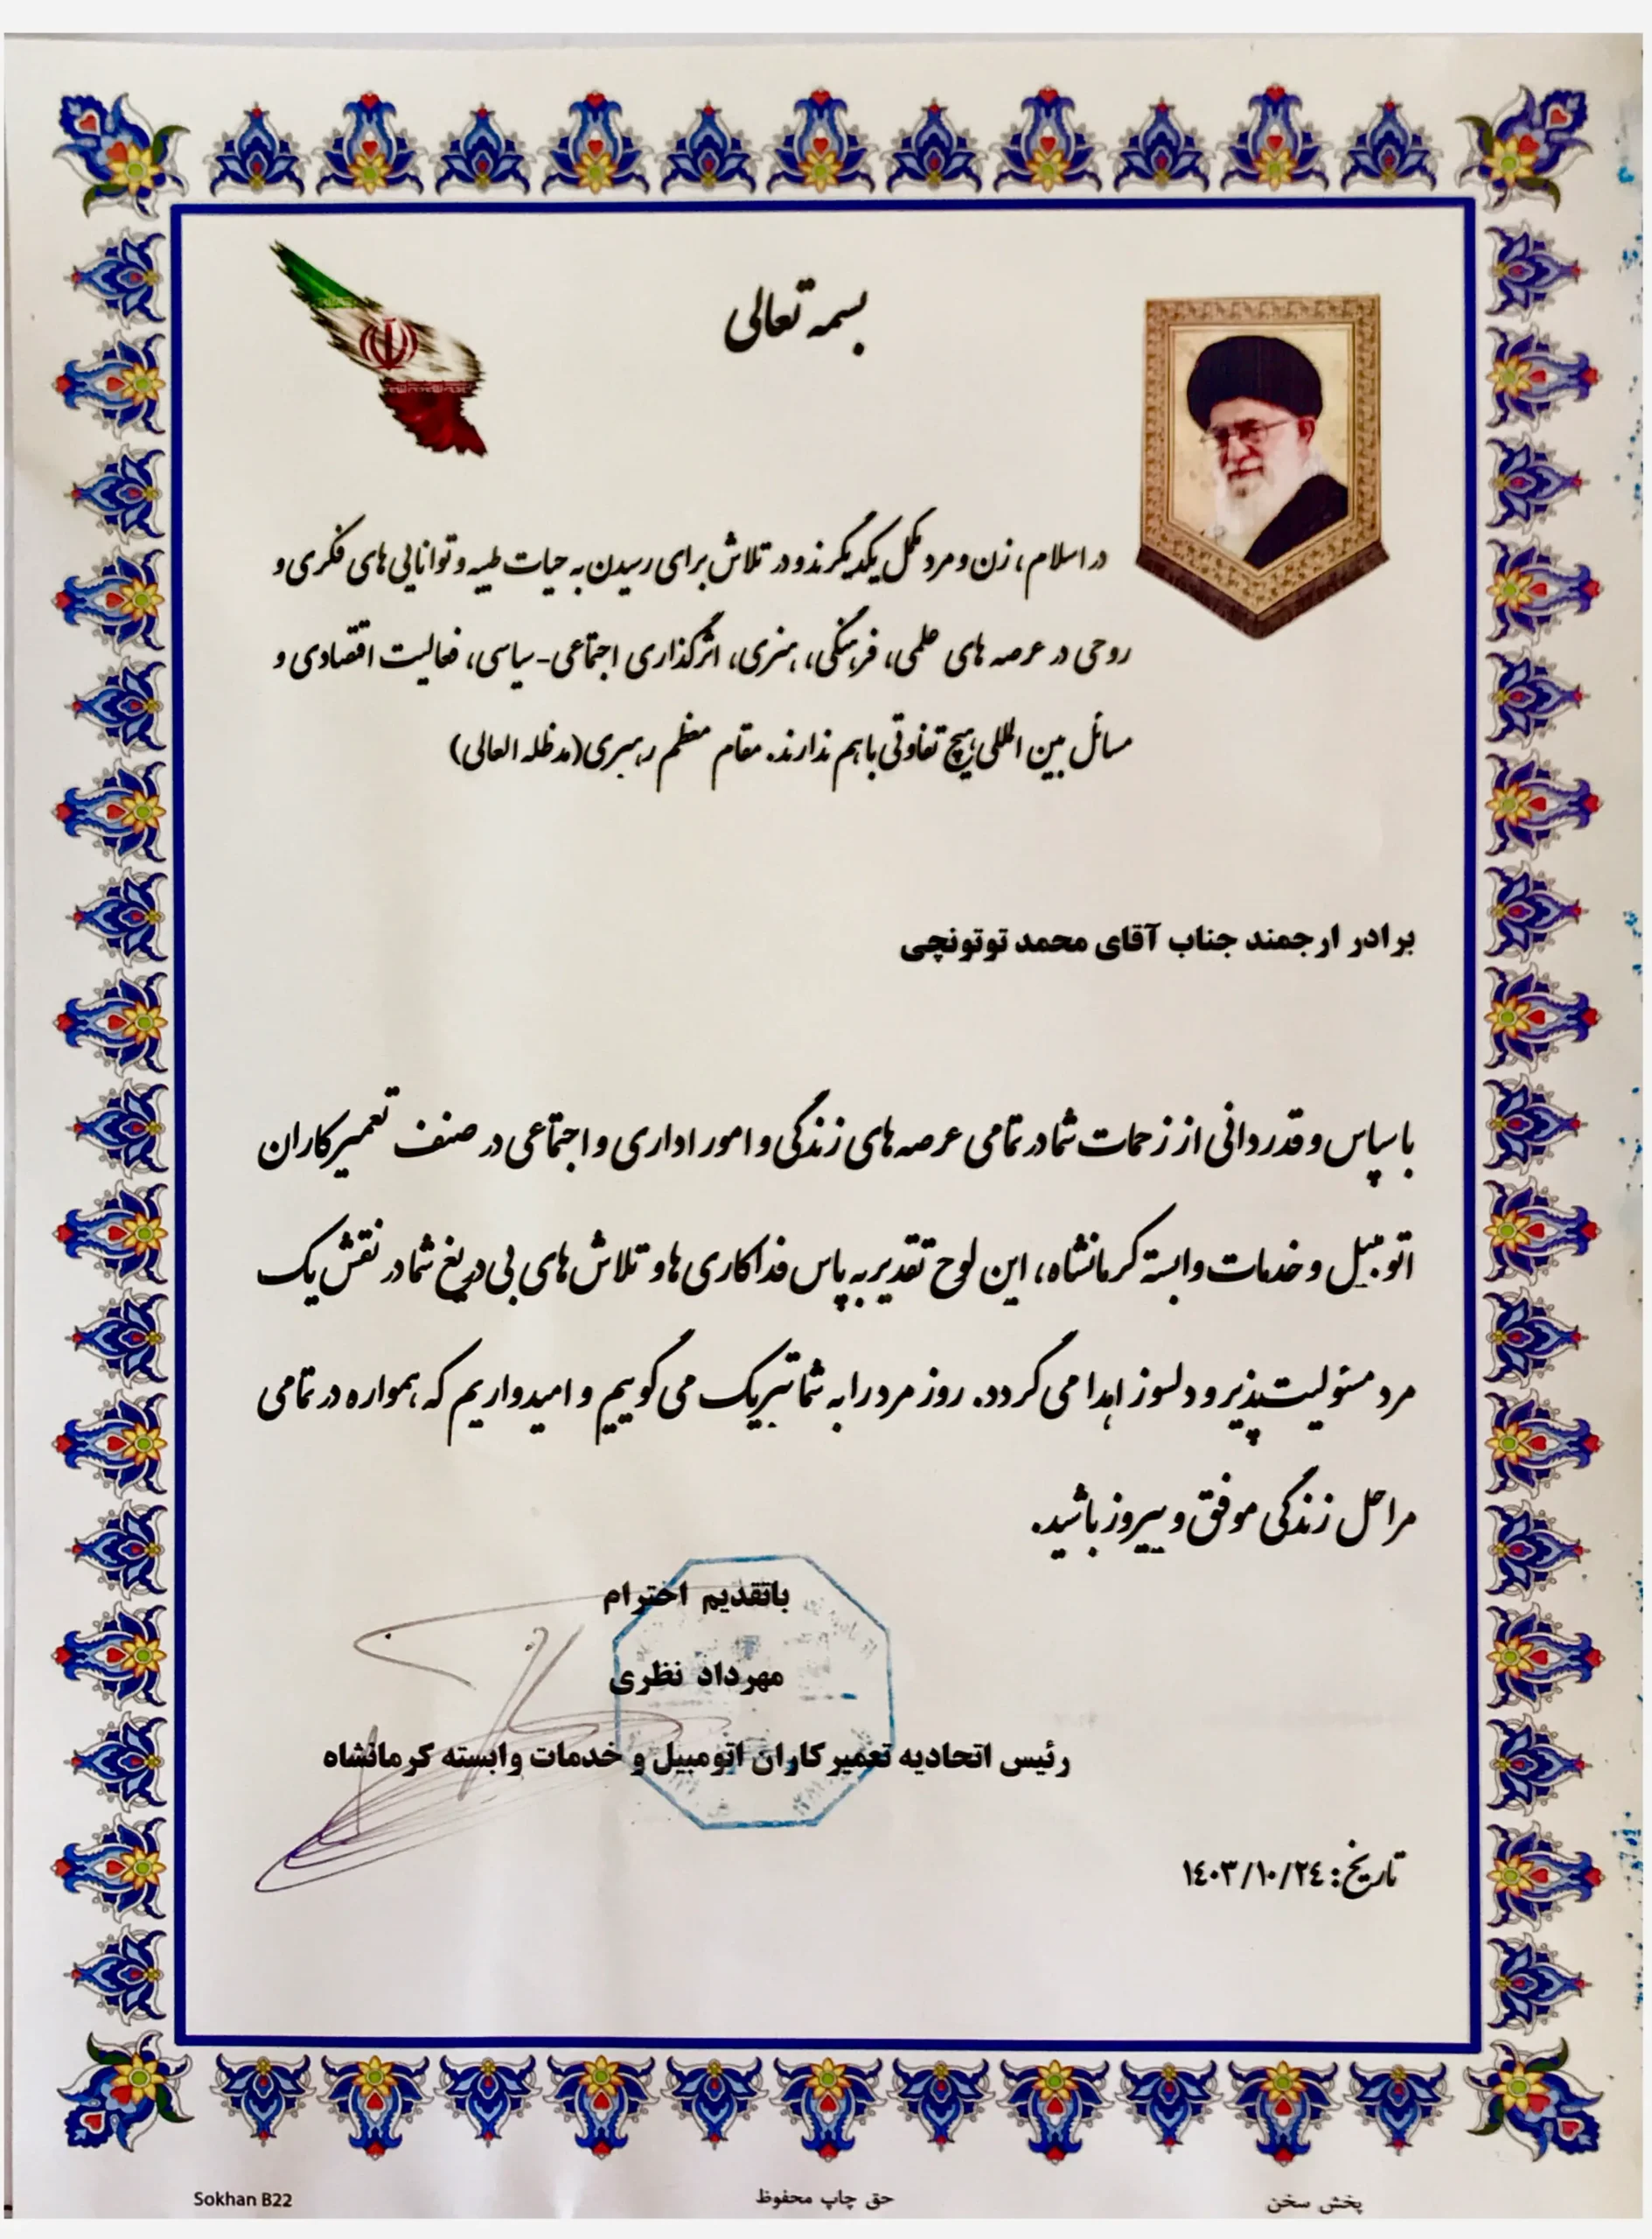 بسمه تعالی
در اسلام، زن و مرد مکمل یکدیگرند و در تلاش برای رسیدن به حیات طیبه و توانایی های فکری و
روحی در عرصه های علمی، فرهنگی، هنری، اثرگذاری اجتماعی-سیاسی، فعالیت اقتصادی و
مسائل بین المللی هیچ تفاوتی باهم ندارند. مقام معظم رهبری(مدظله العالی)
برادر ارجمند جناب آقای محمد توتونچی
با سپاس و قدردانی از زحمات شما در تمامی عرصه های زندگی و امور اداری و اجتماعی در صنف تعمیرکاران
اتومبیل و خدمات وابسته کرمانشاه، این لوح تقدیر به پاس فداکاری ها و تلاش های بی دریغ شما در نقش یک
مرد مسئولیت پذیر و دلسوز اهدا می گردد. روز مرد را به شما تبریک می گوییم و امیدواریم که همواره در تمامی
مراحل زندگی موفق و پیروز باشید.
باتقدیم احترام
مهرداد نظری
رئیس اتحادیه تعمیرکاران اتومبیل و خدمات وابسته کرمانشاه
تاریخ: ۱٤۰۳/۱۰/۲٤
پخش سخن
حق چاپ محفوظ
Sokhan B22